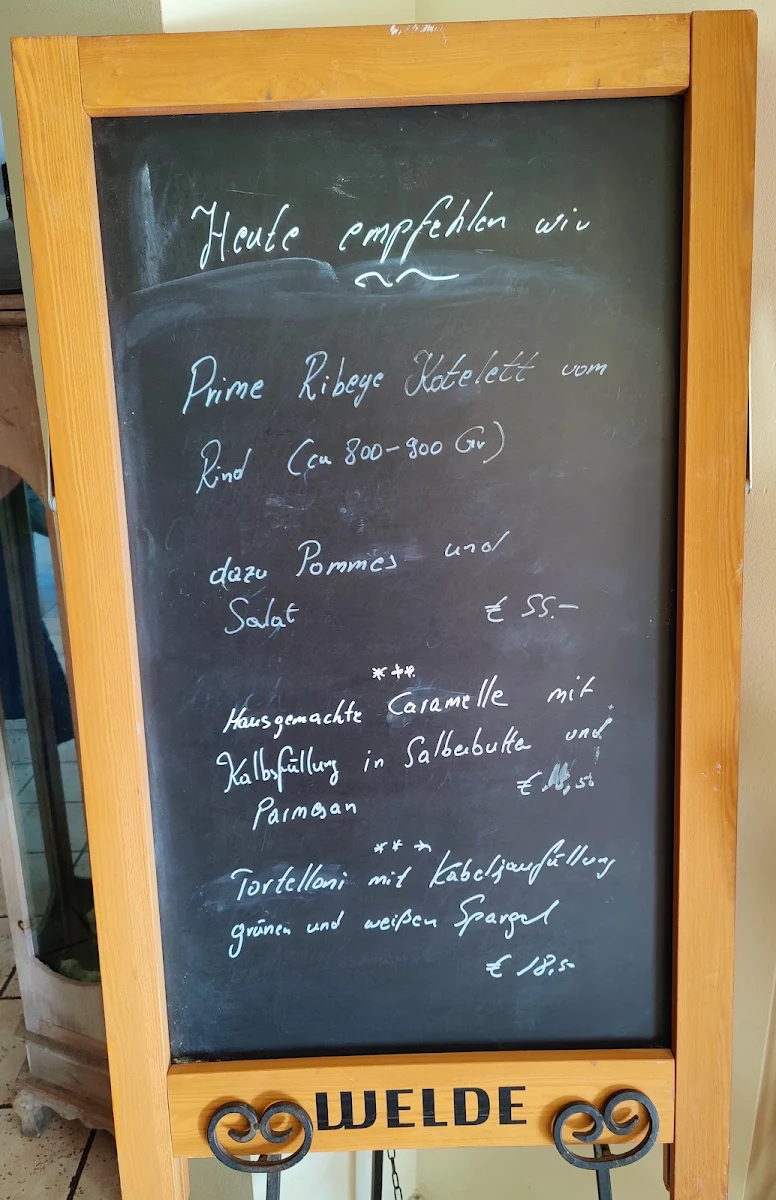 Heute empfehlen wir
Prime Ribeye Kotelett vom
Rind (ca 800-900 Gr)
dazu Pommes und
Salat € 55.-
***
Hausgemachte Caramelle mit
Kalbsfüllung in Salbeibutter und
Parmesan €
***
Tortelloni mit Kabeljaufüllung
grünen und weißen Spargel
€ 18,50
WELDE